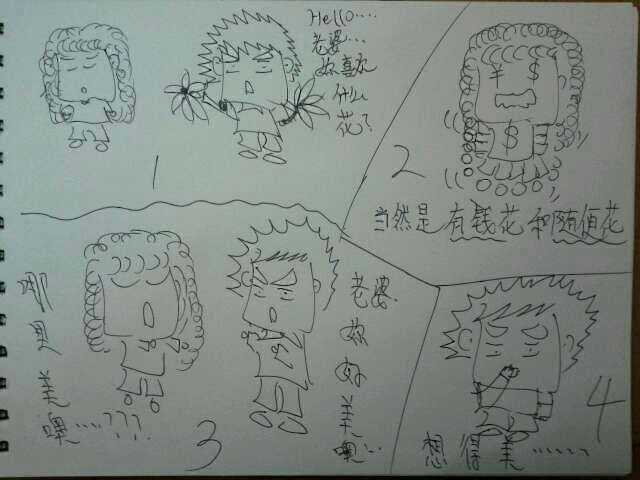 Hello....
老婆...
妳喜欢
什么
花?
1
2
¥ $
$
当然是有钱花和随便花
哪里美噢...???
3
老婆
妳好美噢...
4
想得美......